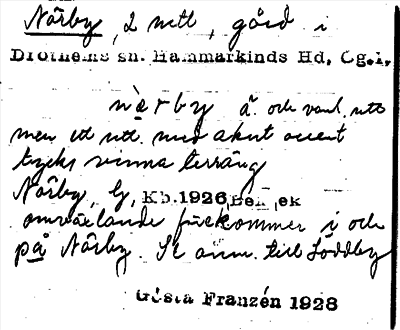 Nårby, 2 mtl, gård i
Drothems sn. Hammarkinds Hd, Ög.l.
närby ä. och vanl. utt
men ett utt. med akut accent
tycks vinna terräng
Nårby, Kb.1926, Bek ek
omväxlande förekommer i och
på Nårby. Se anm. till Loddby
Gösta Franzén 1928